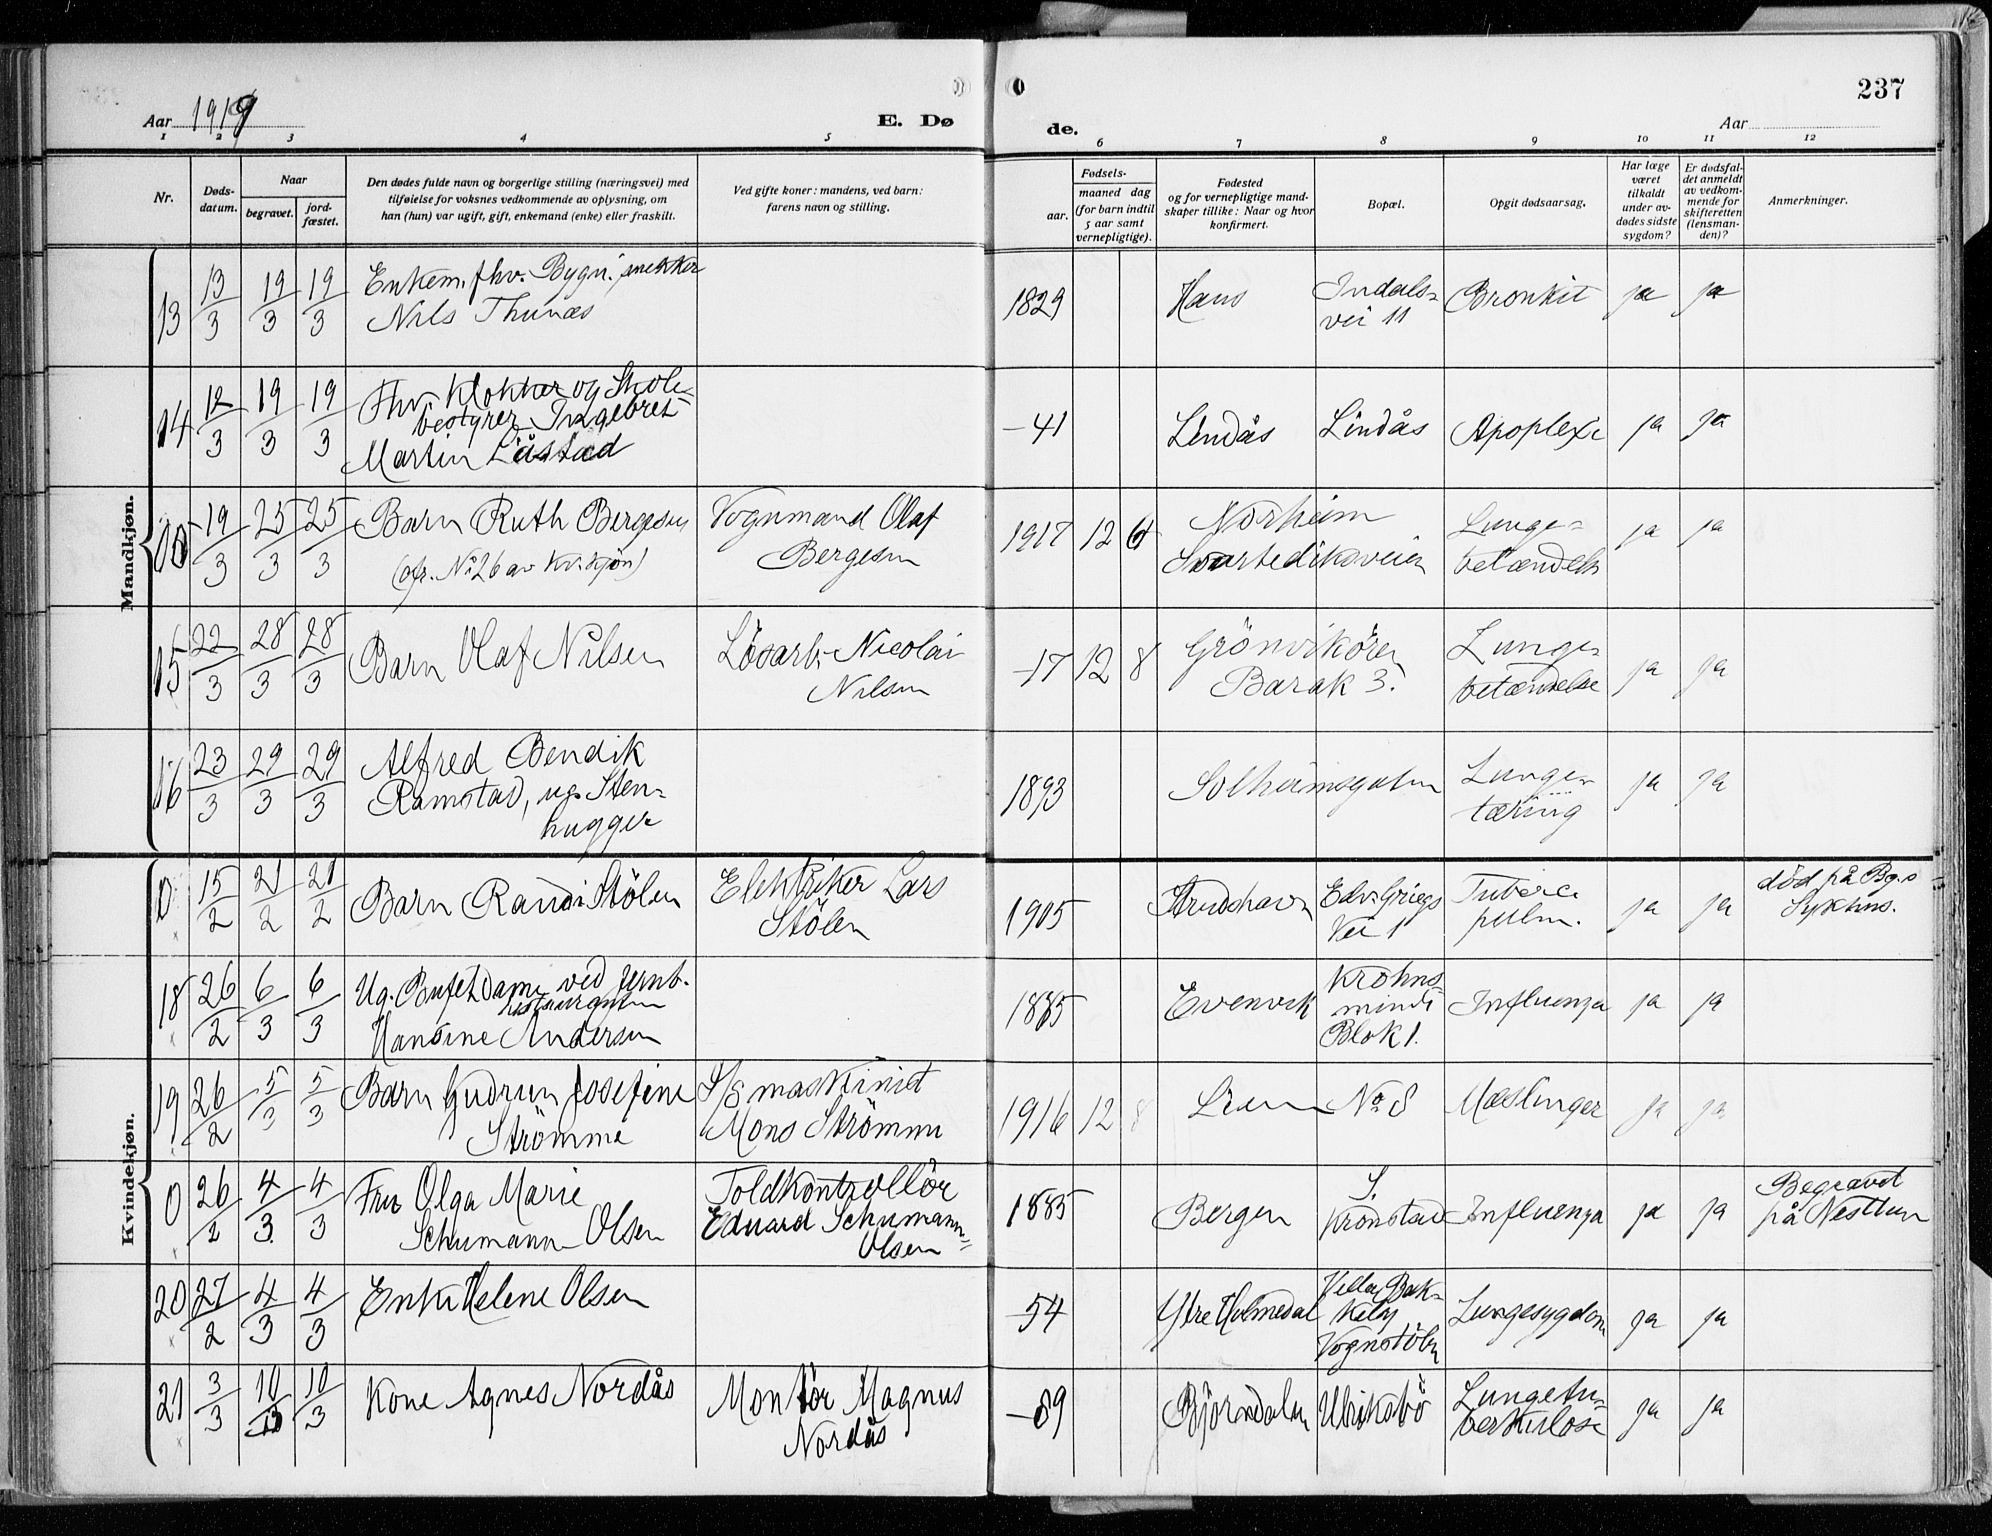 Aar 1919
E. Dø
de.
Aar
237
1 2 3 4 5 6 7 8 9 10 11 12
Nr.
Døds-
datum.
Naar
begravet.
jord-
fæstet.
Den dødes fulde navn og borgerlige stilling (næringsvei) med
tilføielse for voksnes vedkommende av oplysning, om
han (hun) var ugift, gift, enkemand (enke) eller fraskilt.
Ved gifte koner: mandens, ved barn:
farens navn og stilling.
Fødsels-
aar.
maaned dag
(for barn indtil
5 aar samt
vernepligtige).
Fødested
og for vernepligtige mand-
skaper tillike: Naar og hvor
konfirmert.
Bopæl.
Opgit dødsaarsag.
Har læge
været
tilkaldt
under av-
dødes sidste
sygdom?
Er dødsfal-
det anmeldt
av vedkom-
mende for
skifteretten
(lensman-
den)?
Anmerkninger.
Mandkjøn.
13 13/3 19/3 19/3
Enkem. fhv. Bygn. snekker
Nils Thunæs
1829
Haus
Indals-
vei 11
Bronkit
ja ja
14 12/3 19/3 19/3
Fhv. Klokker og Skole-
bestyrer Ingebret
Martin Låstad
-41
Lindås
Lindås
Apoplexi
ja ja
0 19/3 25/3 25/3
Barn Ruth Bergesen
(cfr. No 26 av kv.kjøn)
Vognmand Olaf
Bergesen
1917 12 6
Norheim
Svartediksveien
Lunge-
betændelse
ja ja
15 22/3 28/3 28/3
Barn Olaf Nilsen
Løsarb. Nicolai
Nilsen
-17 12 8
Grönvikören
Barak 3.
Lunge-
betændelse
ja ja
16 23/3 29/3 29/3
Alfred Bendik
Ramstad, ug. Sten-
hugger
1893
Solheimsgaten
Lunge-
tæring
ja ja
Kvindekjøn.
0 15/2 21/2 21/2
Barn Randi Stölen
Elektriker Lars
Stölen
1905
Strudshavn
Edv. Griegs
Vei 1
Tuberc.
pulm.
ja ja
död på Bg.s
Sykehus.
18 26/2 6/3 6/3
Ug. Bufetdame ved Jernb.
restauranten
Hansine Andersen
1885
Evenvik
Krohns-
minde
Blok 1.
Influenza
ja ja
19 26/2 5/3 5/3
Barn Gudrun Josefine
Strömme
S/s maskinist
Mons Strömme
1916 12 8
No 8
Mæslinger
ja ja
0 26/2 4/3 4/3
Fru Olga Marie
Schumann Olsen
Toldkontrollör
Eduard Schumann-
Olsen
1885
Bergen
S.
Kronstad
Influenza
ja ja
Begravet
på Nesttun
20 27/2 4/3 4/3
Enke Helene Olsen
-54
Ytre Holmedal
Villa Bak-
Vognstölen
Lungesygdom
ja ja
21 3/3 10/3 10/3
Kone Agnes Nordås
Montör Magnus
Nordås
-89
Björndalen
Ulriksbö
Lungetu-
berkulose
ja ja